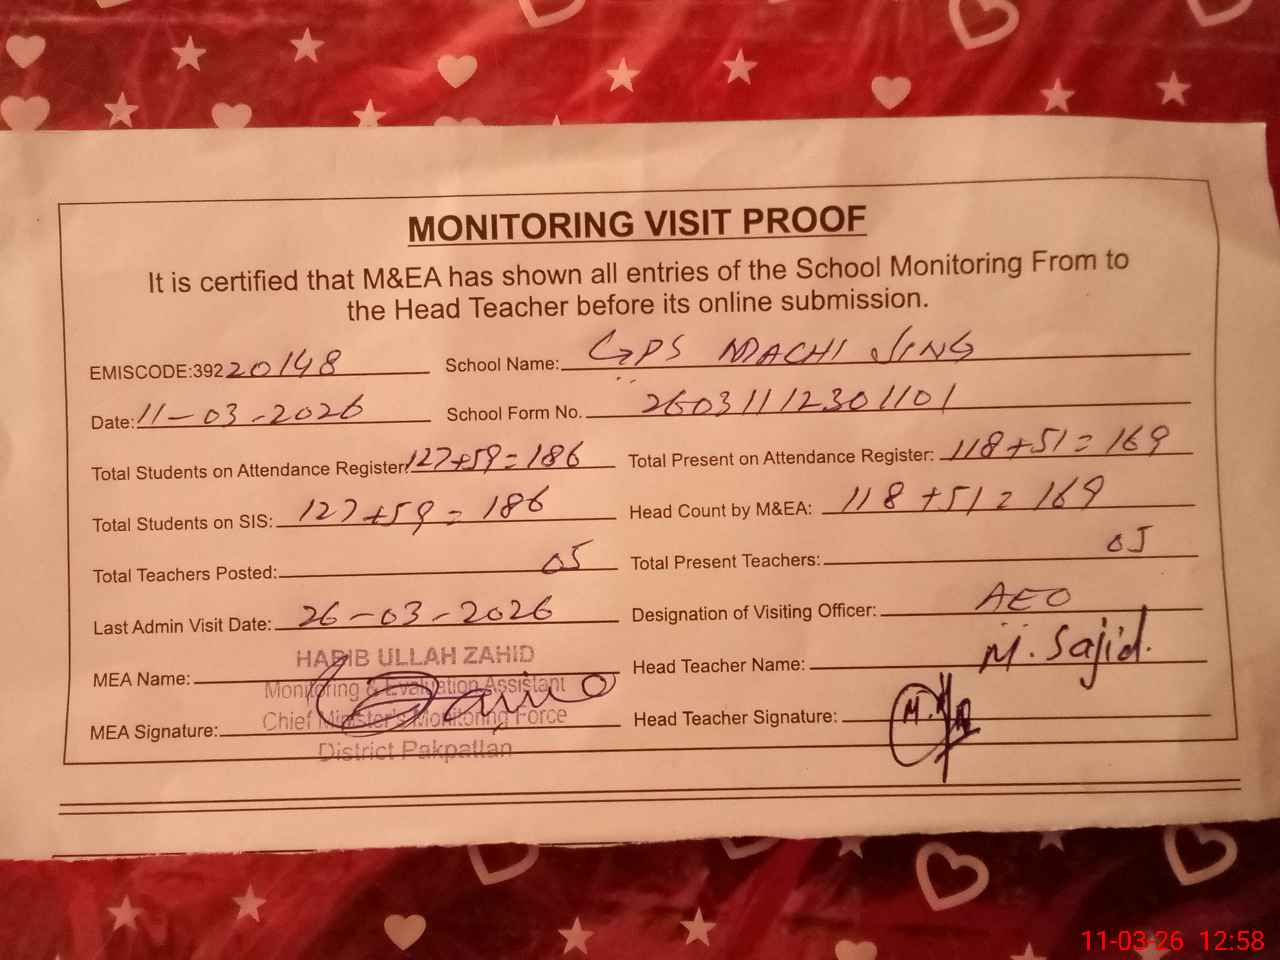 MONITORING VISIT PROOF
It is certified that M&EA has shown all entries of the School Monitoring From to
the Head Teacher before its online submission.
EMISCODE:39220148 School Name: GPS MACHI SING
Date: 11-03-2026 School Form No. 260311112301101
Total Students on Attendance Register: 127+59=186 Total Present on Attendance Register: 118+51=169
Total Students on SIS: 127+59=186 Head Count by M&EA: 118+51=169
Total Teachers Posted: 05 Total Present Teachers: 05
Last Admin Visit Date: 26-03-2026 Designation of Visiting Officer: AEO
HABIB ULLAH ZAHID
MEA Name: Head Teacher Name: M. Sajid.
Monitoring & Evaluation Assistant
Chief Minister's Monitoring Force
MEA Signature: Head Teacher Signature:
District Pakpattan
11-03-26 12:58